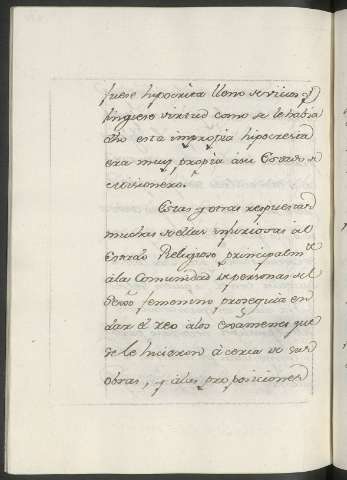 fuese hipocrita lleno de vicios q̃
fingiese virtud como se le habia
dho esta impropia hipocresia
era muy propia a su Estado de
Misionero.
Estas y otras respuestas
muchas de ellas injuriosas al
Estado Religioso principalmte
a las Comunidades personas del
devoto femenino proseguia en
dar el reo a los examenes que
se le hicieron à cerca de sus
obras, y a las proposiciones